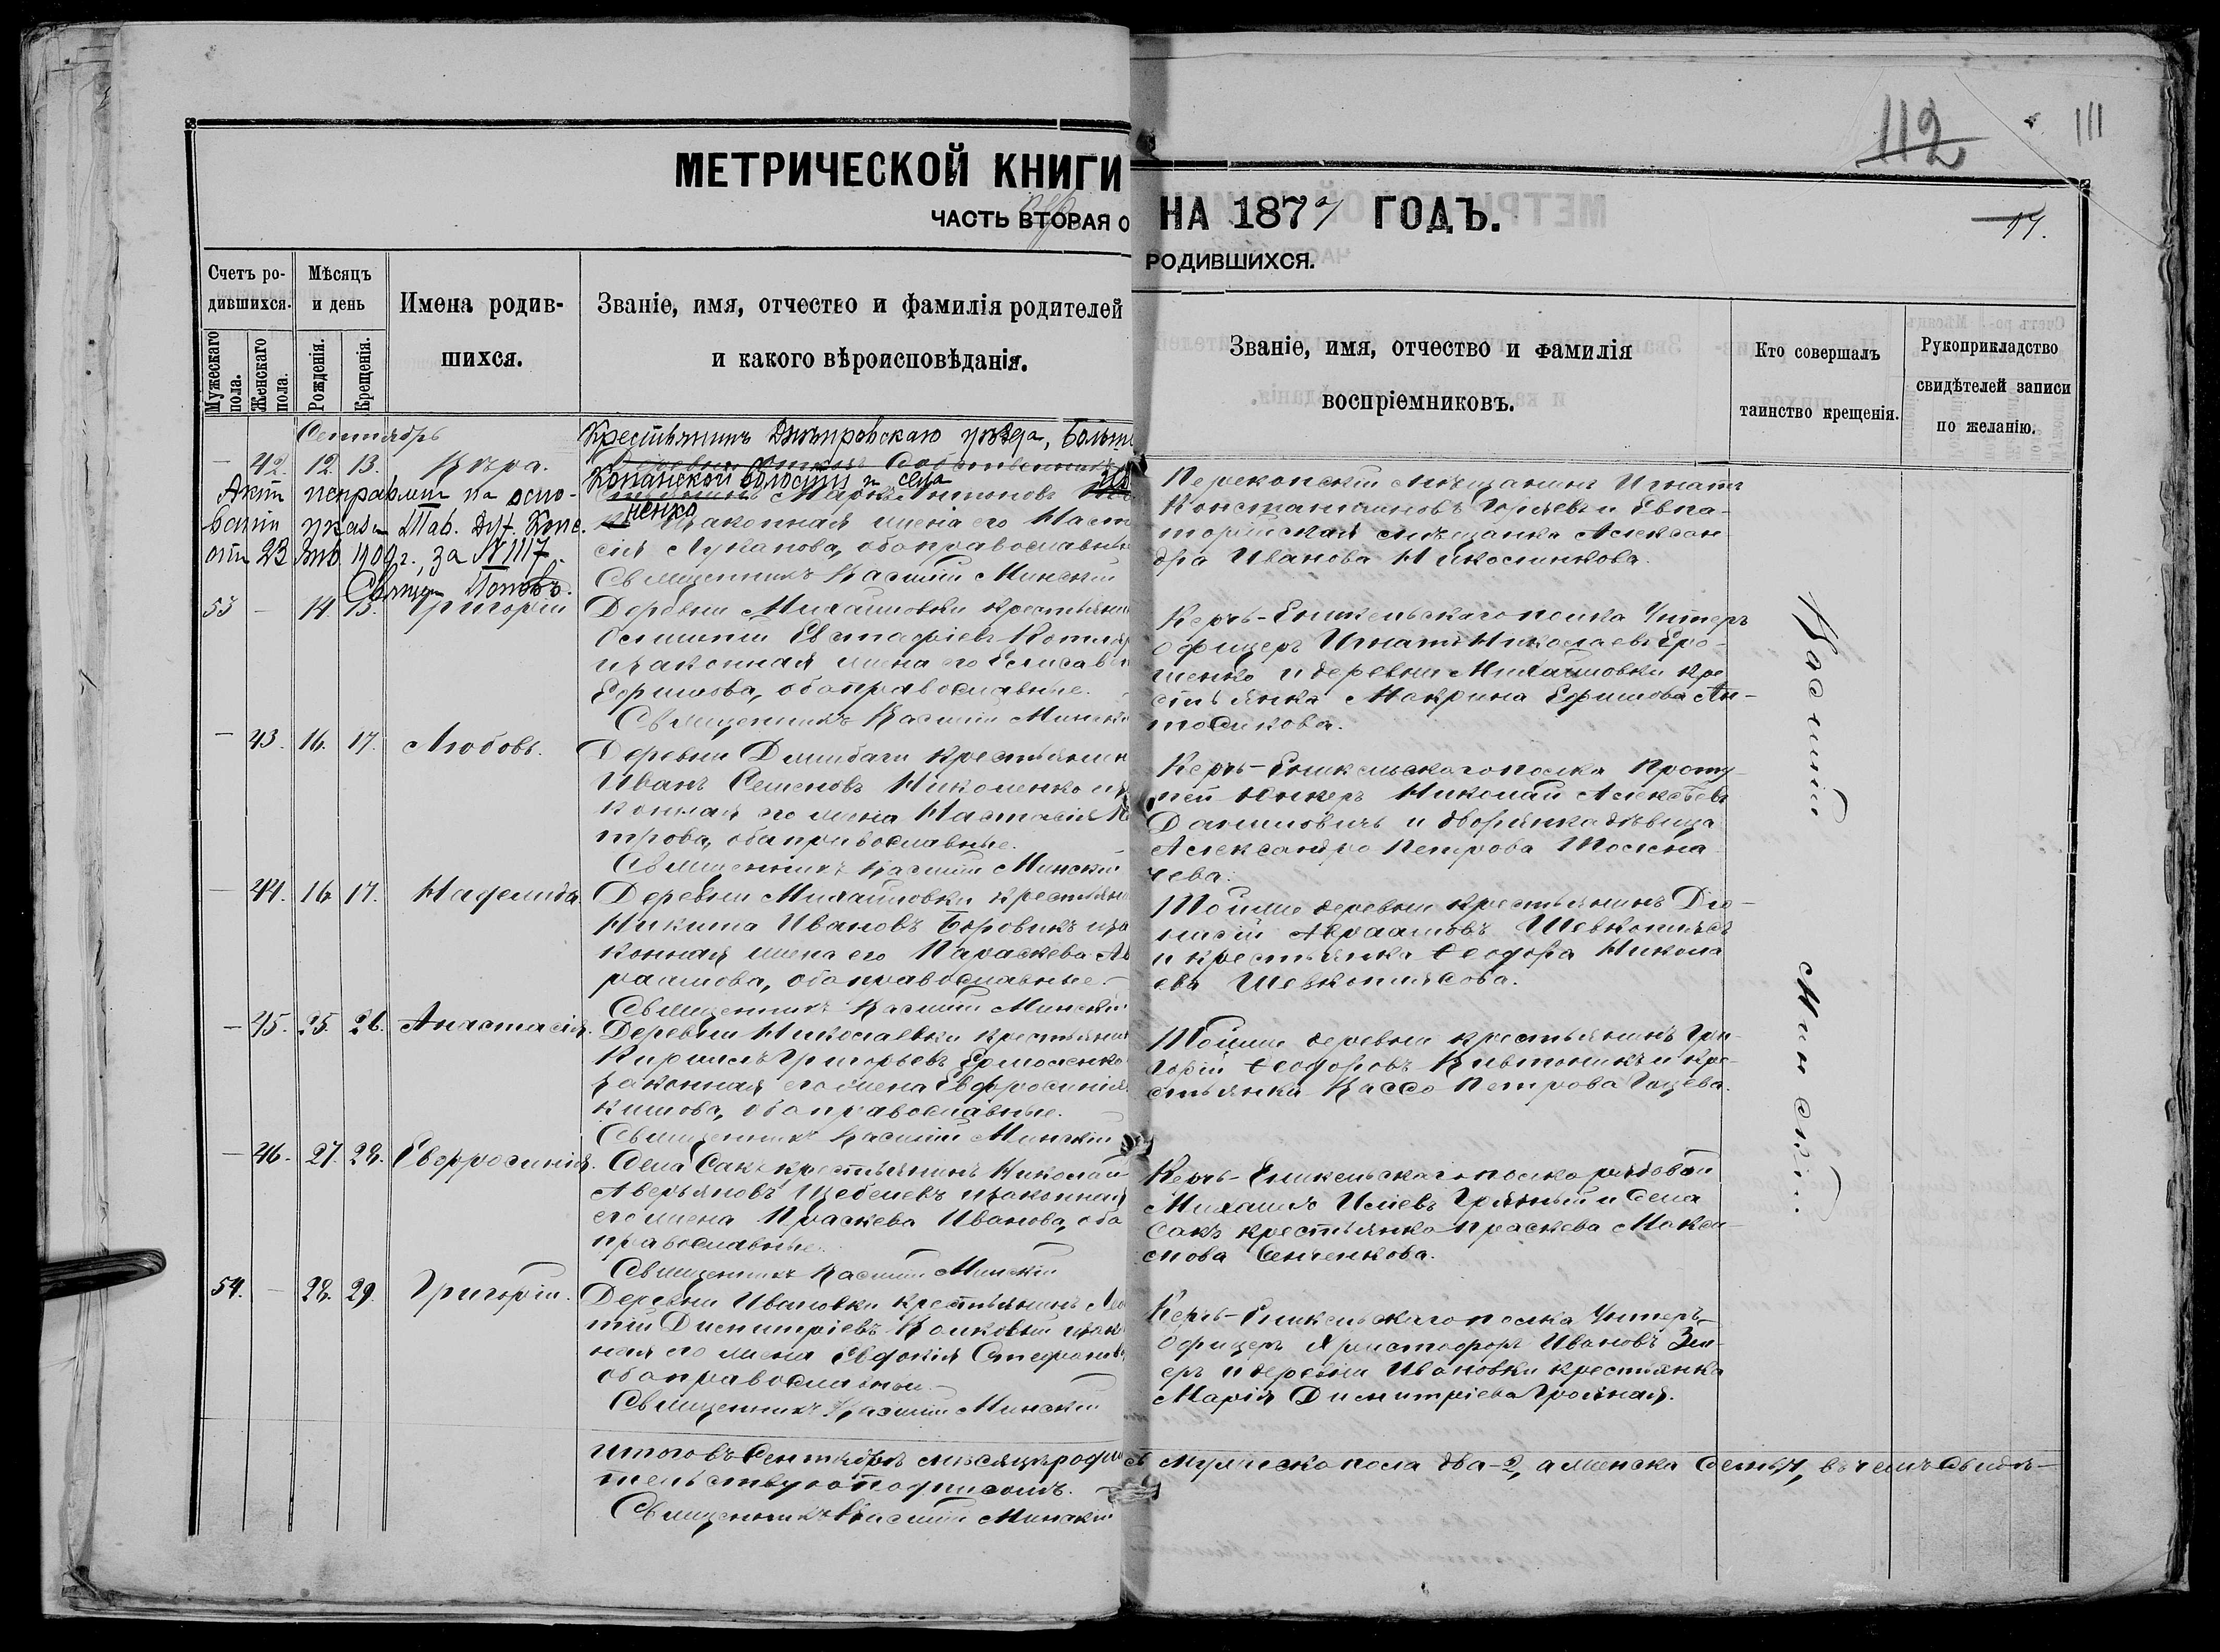 112
111
МЕТРИЧЕСКОЙ КНИГИ
НА 1877 ГОДЪ.
19.
ЧАСТЬ ВТОРАЯ О
РОДИВШИХСЯ.
Счетъ ро-
дившихся.
Мужескаго пола.
Женскаго пола.
Мѣсяцъ
и день
Рожденія.
Крещенія.
Имена родив-
шихся.
Званіе, имя, отчество и фамилія родителей
и какого вѣроисповѣданія.
Званіе, имя, отчество и фамилія
воспріемниковъ.
Кто совершалъ
таинство крещенія.
Рукоприкладство
свидѣтелей записи
по желанію.
Сентябрь
42. 12. 13. Вѣра.
Актъ исправленъ на осно-
ваніи указа Тав. Дух. Конс.
отъ 23 1909 г., за № 1117.
Священ. Поповъ.
Крестьянинъ Днѣпровскаго уѣзда, Больше
Копанской волости и села
Маркъ Антоновъ
ненко
законная жена его Наста
сія Луканова, оба православные
Священникъ Василій Минскій
Перекопскій мѣщанинъ Игнатъ
Константиновъ и Евпа-
торійская мѣщанка Алексан
дра Иванова Николинкова.
53 - 14. 15. Григорій
Деревни Михайловки крестьянин
Евстафіевъ
и законная жена его Елисаве
Ефимова, оба православные.
Священникъ Василій Минскій
Керчь-Еникольскаго полка Унтеръ
офицеръ Игнатъ Николаевъ Еро-
шенко и деревни Михайловки кре
стьянка Макрина Ефимова Ан-
тосикова.
- 43. 16. 17. Любовь.
Деревни крестьянин
Иванъ Семеновъ Николенко и за
конная его жена Настасія Пе
трова, оба православные.
Священникъ Василій Минскій
Керчь-Еникольскаго полка Порту
пей Юнкеръ Николай Алексѣевъ
Даниловичъ и дворянка дѣвица
Александра Петрова Толма
чева.
- 44. 16. 17. Надежда
Деревни Михайловки крестьянин
Никита Ивановъ Боровикъ и за
конная жена его Параскева Ав
раамова, оба православные.
Священникъ Василій Минскій
Тойже деревни крестьянинъ Дио-
нисій Авраамовъ Шевкоплясъ
и крестьянка Ѳеодора Никола
ева Шевкоплясова.
- 45. 25. 26. Анастасія.
Деревни Николаевки крестьянин
Кириллъ Григорьевъ Ермоленко
законная его жена Евфросинія
кимова, оба православные.
Священникъ Василій Минскій
Тойже деревни крестьянинъ Гри-
горій Ѳеодоровъ и кре-
стьянка Васса Петрова
- 46. 27. 28. Евфросинія.
Села Сакъ крестьянинъ Николай
Аверьяновъ Щебелекъ и законная
его жена Праскева Иванова, оба
православные.
Священникъ Василій Минскій
Керчь-Еникольскаго полка рядовой
Михаилъ Ильевъ Грязный и Села
Сакъ крестьянка Праскева Макси
мова Сенченкова.
54. - 28. 29. Григорій.
Деревни Ивановки крестьянинъ Ле
тій Димитріевъ Волковый и закон
ная его жена Евдокія Стефанова
оба православные.
Священникъ Василій Минскій
Керчь-Еникольскаго полка Унтеръ-
Офицеръ Христофоръ Ивановъ Зи
еръ и деревни Ивановки крестьянка
Марія Димитріева Грязная.
Василій Минскій.
Итого въ Сентябрѣ мѣсяцѣ родил сь мужеска пола два-2, а женска, въ чемъ свидѣ-
тельствую подписомъ.
Священникъ Василій Минскій